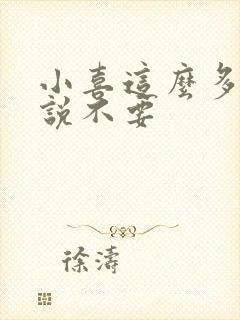 小喜這麼多
說不要
徐濤